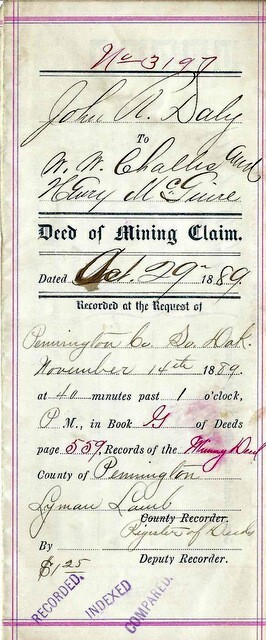 No 3197
John R. Daly
To
W. W. Challis and
Henry McGuire
Deed of Mining Claim.
Dated Oct. 29th 1889.
Recorded at the Request of
Pennington Co So. Dak.
November 14th 1889.
at 40 minutes past 1 o'clock,
P M., in Book G of Deeds
page 559, Records of the Mining Deed
County of Pennington
Lyman Lamb
County Recorder.
Register of Deeds
By
Deputy Recorder.
$1.25
RECORDED. INDEXED COMPARED.